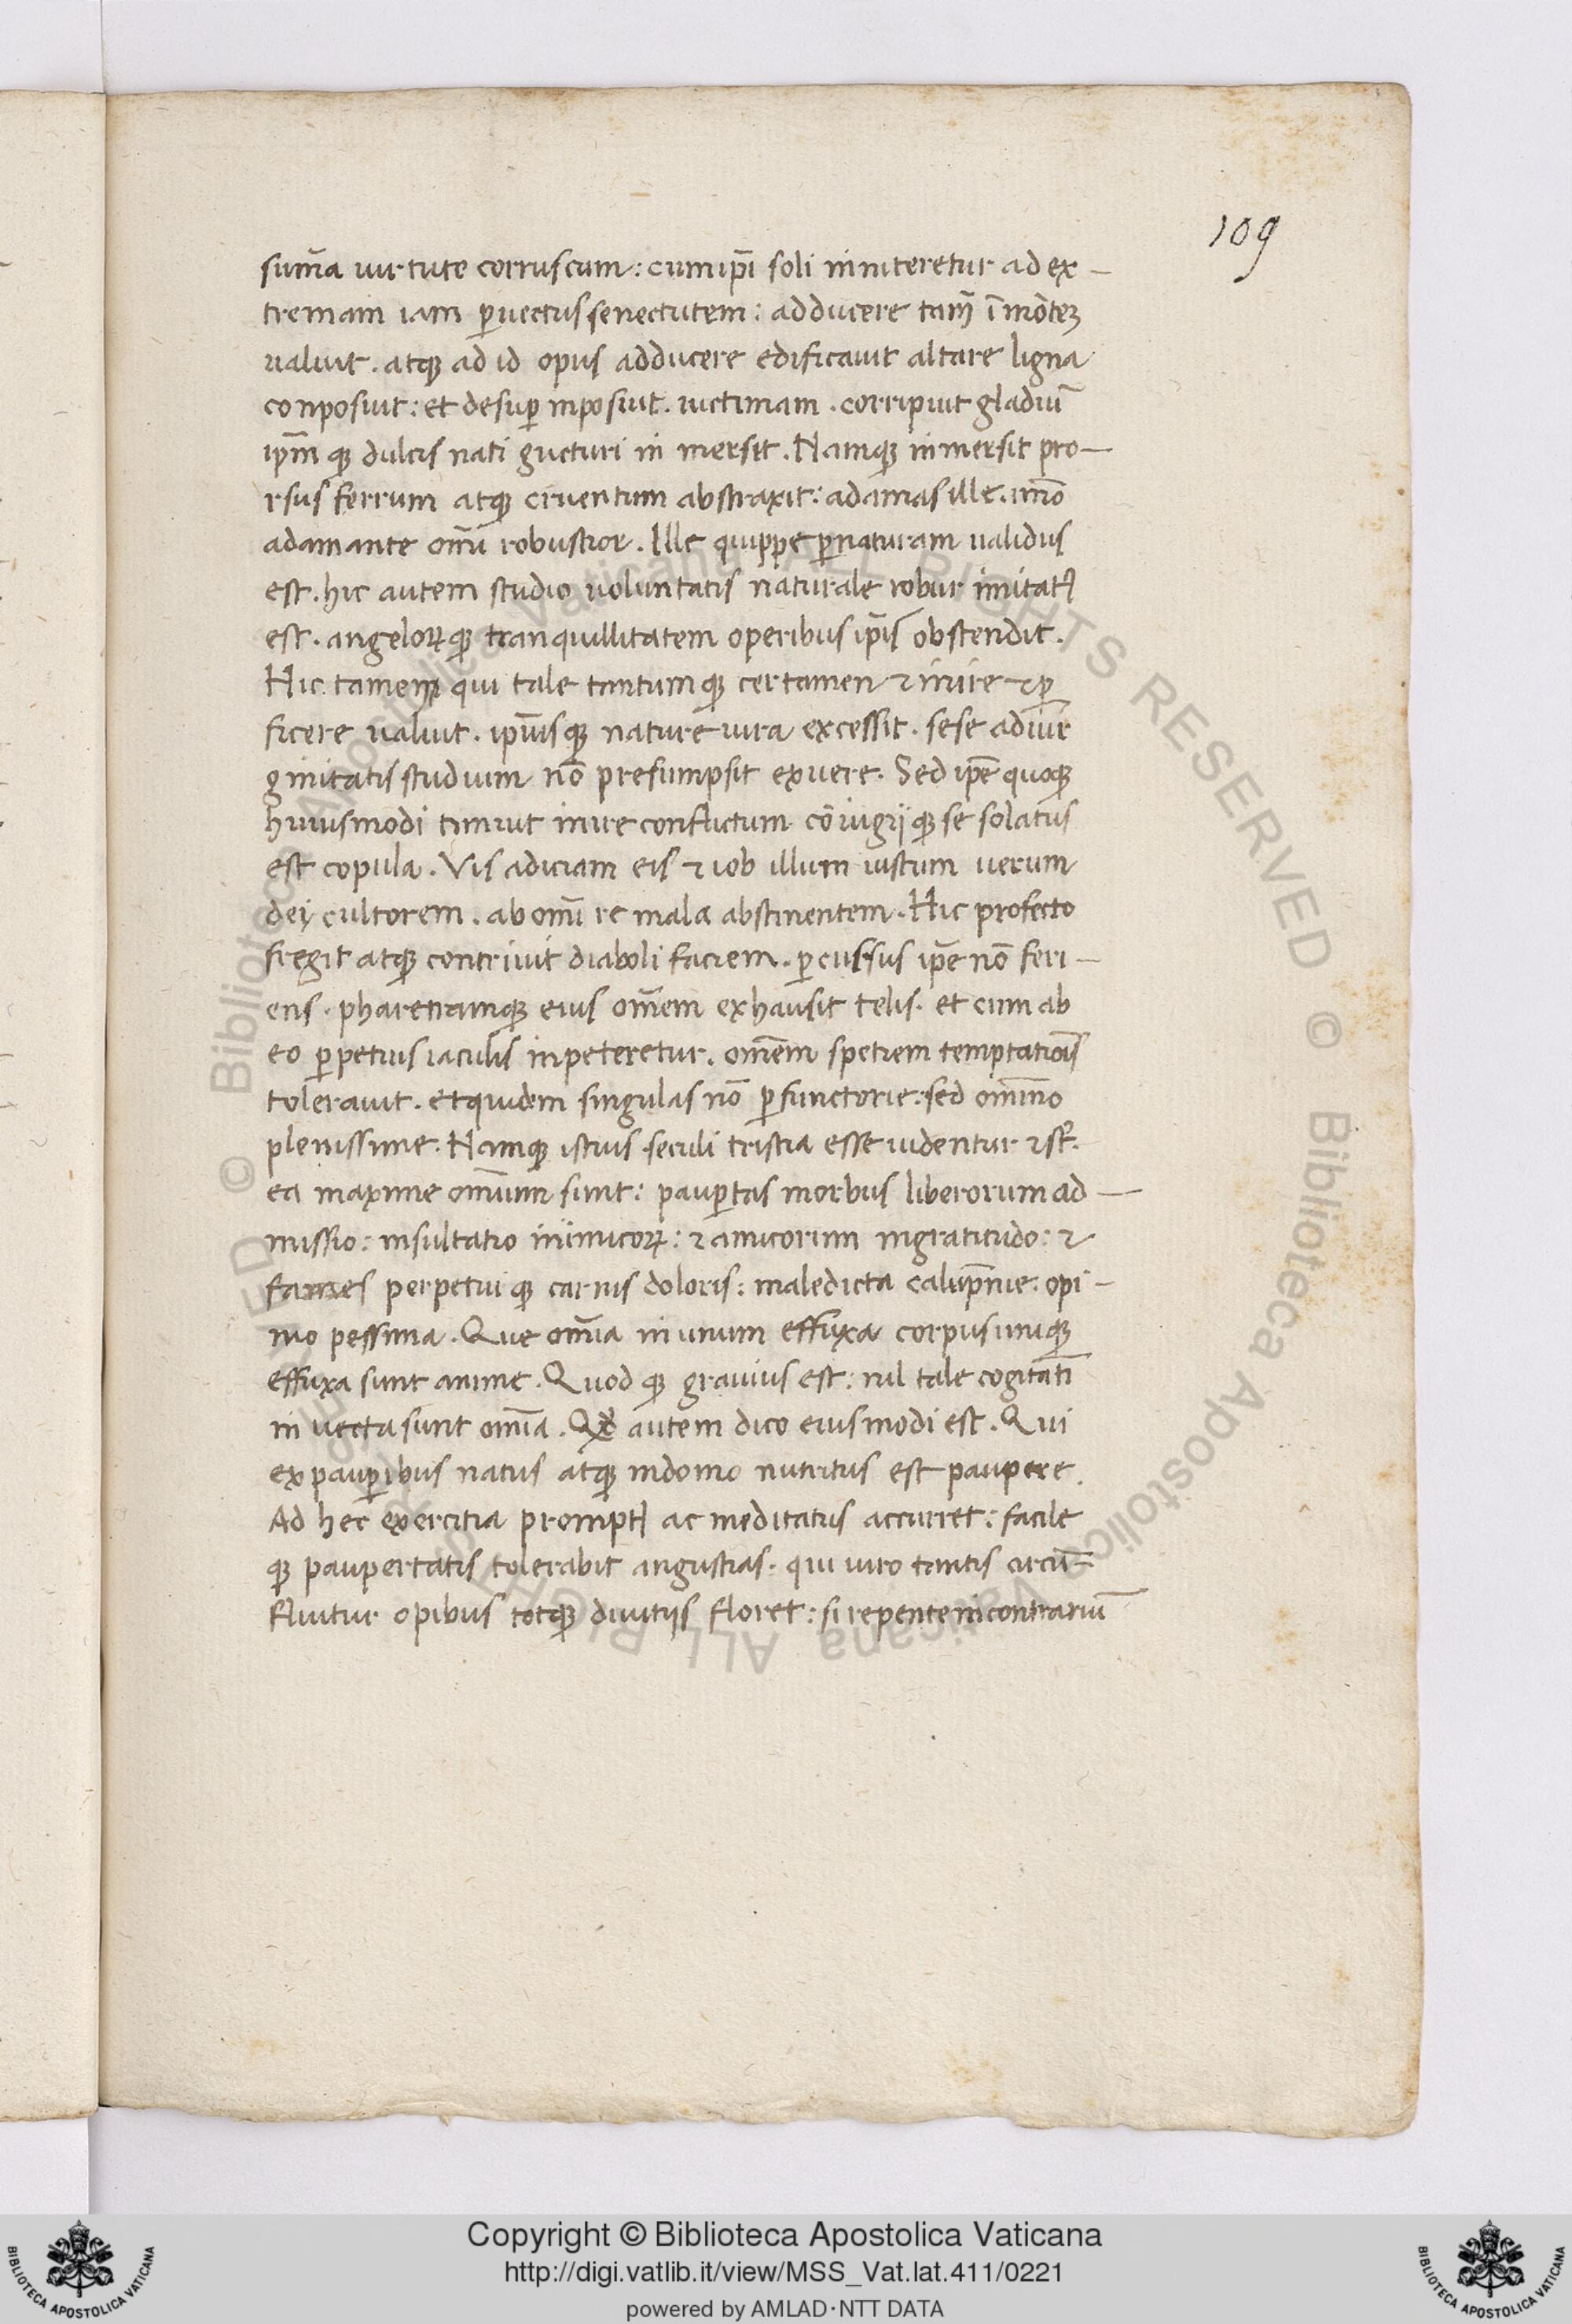 109
sum̄a uirtute corruscum: cum ip̄i soli inniteretur ad ex-
tremam iam ꝑuectus senectutem: adducere tam̄ ī mōteꝫ
ualuit. atqꝫ ad id opus adducere edificauit altare ligna
conposuit: et desuꝑ inposuit. uictimam. corripuit gladiū
ip̄m qꝫ dulcis nati gucturi in mersit. Namqꝫ inmersit pro-
rsus ferrum atqꝫ cruentum abstraxit: adamas ille. im̄o
adamante om̄i robustior. Ille quippe ꝑ naturam ualidus
est. hic autem studio uoluntatis naturale robur imitatꝰ
est. angeloꝝqꝫ tranquillitatem operibus ip̄is obstendit.
Hic tamen qui tale tantumqꝫ certamen ⁊ inire ⁊ ꝑ
ficere ualuit. ipsiusqꝫ nature iura excessit. sese ad uir
ginitatis studium nō presumpsit exuere. Sed ip̄e quoqꝫ
huiusmodi timuit inire conflictum cōiugijqꝫ se solatus
est copula. Vis adiciam eis ⁊ iob illum iustum uerum
dei cultorem. ab om̄i re mala abstinentem. Hic profecto
fregit atqꝫ contriuit diaboli faciem. ꝑcussus ip̄e nō feri-
ens. pharetramqꝫ eius om̄em exhausit telis. et cum ab
eo ꝑpetuis iaculis inpeteretur. om̄em spetiem temptatiōis
tolerauit. et quidem singulas nō ꝑfunctorie: sed om̄ino
plenissime. Namqꝫ istius seculi tristia esse uidentur ⁊ st̄.
ea maxime om̄ium sunt: pauꝑtas morbus liberorum ad-
missio: insultatio inimicoꝝ: ⁊ amicorum ingratitudo: ⁊
fames perpetuiqꝫ carnis doloris: maledicta calūpnie: opi-
nio pessima. Que om̄ia in unum effuxa corpus unūqꝫ
effuxa sunt anime. Quodqꝫ grauius est: nil tale cogitāti
in uecta sunt om̄ia. Qđ autem dico eiusmodi est. Qui
ex pauꝑibus natus atqꝫ indomo nutritus est paupere.
Ad hec exercitia promptꝰ ac meditatus accurret: facile
qꝫ paupertatis tolerabit angustias. qui uiro tantis circū-
fluitur opibus totqꝫ diuitijs floret: si repente in contrariū
© Biblioteca Apostolica Vaticana ALL RIGHTS RESERVED
Copyright © Biblioteca Apostolica Vaticana
http://digi.vatlib.it/view/MSS_Vat.lat.411/0221
powered by AMLAD·NTT DATA
BIBLIOTECA APOSTOLICA VATICANA
BIBLIOTECA APOSTOLICA VATICANA